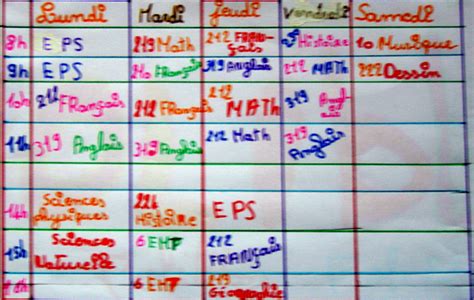 Lundi Mardi Jeudi Vendredi Samedi
8h EPS 219 Math 212 FRANçais Histoire 10 Musique
9h EPS 210 FRançais 319 Anglais 212 MATH 222 Dessin
10h 212 FRançais 212 FRançais 212 MATH 319 Anglais
11h 319 Anglais 319 Anglais 212 Math 319 Anglais
14h Sciences physiques 226 Histoire EPS
15h Sciences Naturelle 6 EMT 212 FRANçais
16h 6 EMT 219 Géographie